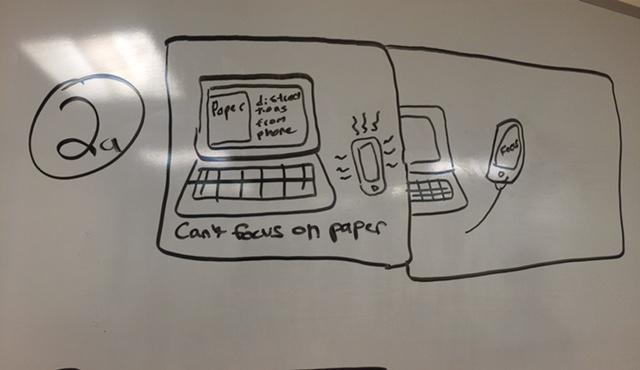 2a
Paper
distract
tions
from
phone
Can't focus on paper
Focus